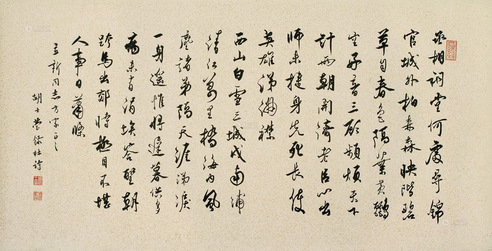 丞相祠堂何處尋錦
官城外柏森森映階碧
草自春色隔葉黃鸝
空好音三顧頻煩天下
計兩朝開濟老臣心出
師未捷身先死長使
英雄淚滿襟
西山白雪三城戍南浦
清江萬里橋海內風
塵諸弟隔天涯涕淚
一身遙惟將遲暮供多
病未有涓埃答聖朝
跨馬出郊時極目不堪
人事日蕭條
立新同志方家正之
胡士瑩錄杜詩